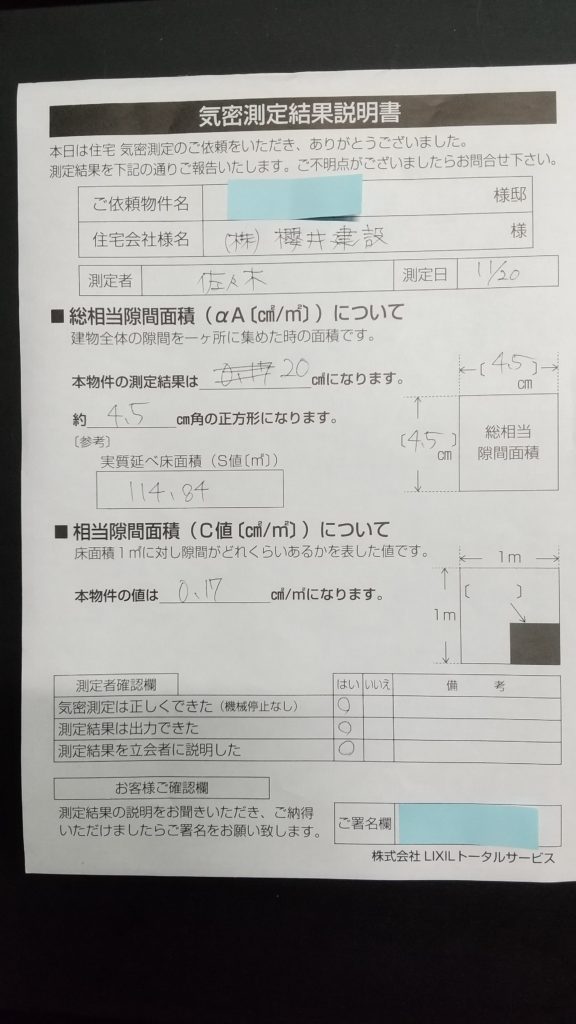 気密測定結果説明書
本日は住宅 気密測定のご依頼をいただき、ありがとうございました。
測定結果を下記の通りご報告いたします。ご不明点がございましたらお問合せ下さい。
ご依頼物件名 様邸
住宅会社様名 (株) 櫻井建設 様
測定者 佐々木 測定日 11/20
■ 総相当隙間面積（αA〔c㎡/㎡〕）について
建物全体の隙間を一ヶ所に集めた時の面積です。
本物件の測定結果は 0.17 20 c㎡になります。
約 4.5 cm角の正方形になります。
〔参考〕
実質延べ床面積（S値〔㎡〕）
114.84
〔4.5〕
cm
〔4.5〕
cm
総相当
隙間面積
■ 相当隙間面積（C値〔c㎡/㎡〕）について
床面積１㎡に対し隙間がどれくらいあるかを表した値です。
本物件の値は 0.17 c㎡/㎡になります。
1m
1m
〔 〕
測定者確認欄 はい いいえ 備 考
気密測定は正しくできた（機械停止なし） ○
測定結果は出力できた ○
測定結果を立会者に説明した ○
お客様ご確認欄
測定結果の説明をお聞きいただき、ご納得
いただけましたらご署名をお願い致します。
ご署名欄
株式会社 LIXILトータルサービス